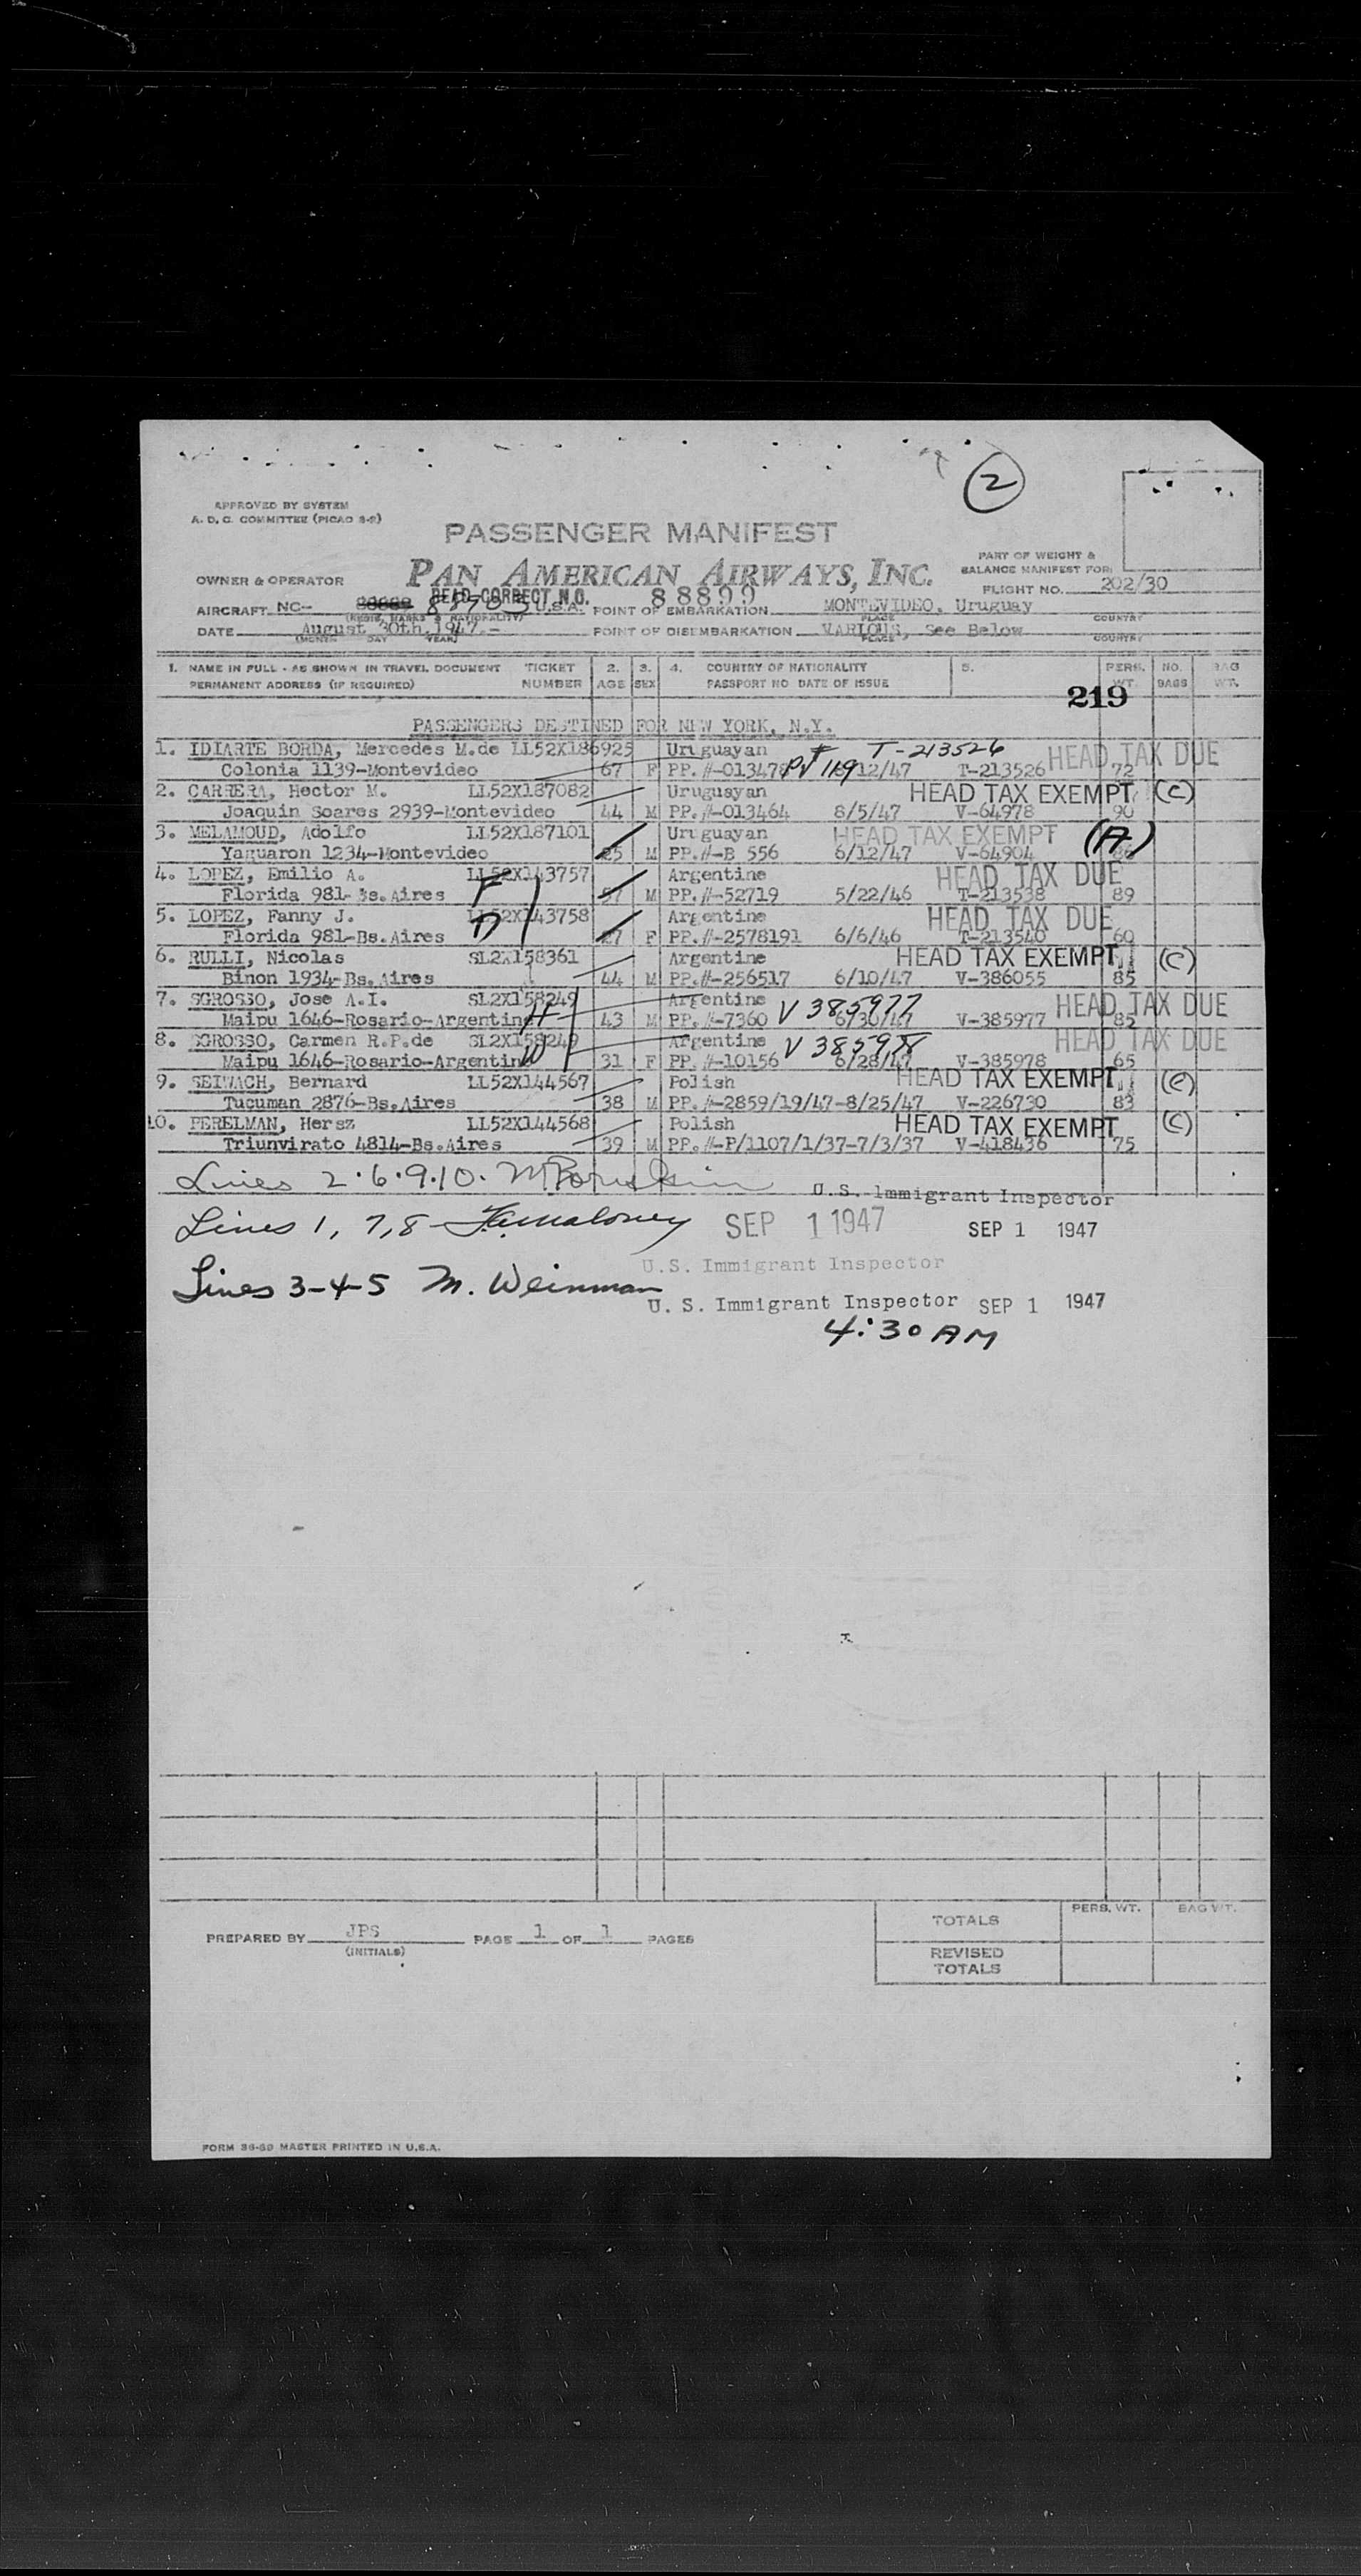 2
APPROVED BY SYSTEM
A. D. C. COMMITTEE (PICAO 8-2)
PASSENGER MANIFEST
PART OF WEIGHT &
BALANCE MANIFEST FOR:
OWNER & OPERATOR
PAN AMERICAN AIRWAYS, INC.
FLIGHT NO. 202/30
READ CORRECT N.O. 88899
AIRCRAFT NC-- U.S.A. POINT OF EMBARKATION MONTEVIDEO. Uruguay
(REGIS. MARKS & NATIONALITY) PLACE COUNTRY
DATE August 30th, 1947.- POINT OF DISEMBARKATION VARIOUS, See Below
(MONTH DAY YEAR) PLACE COUNTRY
1. NAME IN FULL - AS SHOWN IN TRAVEL DOCUMENT TICKET 2. 3. 4. COUNTRY OF NATIONALITY 5. PERS. NO. BAG
PERMANENT ADDRESS (IF REQUIRED) NUMBER AGE SEX PASSPORT NO DATE OF ISSUE WT. BAGS WT.
219
PASSENGERS DESTINED FOR NEW YORK, N.Y.
1. IDIARTE BORDA, Mercedes M.de LL52X186925 Uruguayan T-213526 HEAD TAX DUE
Colonia 1139-Montevideo 67 F PP.#-01347 12/47 T-213526 72
2. CARRERA, Hector M. LL52X187082 Uruguayan HEAD TAX EXEMPT (C)
Joaquin Soares 2939-Montevideo 44 M PP.#-013464 8/5/47 V-64978 90
3. MELAMOUD, Adolfo LL52X187101 Uruguayan HEAD TAX EXEMPT (A)
Yaguaron 1234-Montevideo M PP.#-B 556 6/12/47 V-64904
4. LOPEZ, Emilio A. LL52X143757 Argentine HEAD TAX DUE
Florida 981-Bs.Aires F M PP.#-52719 5/22/46 T-213538 89
5. LOPEZ, Fanny J. LL52X143758 Argentine HEAD TAX DUE
Florida 981-Bs.Aires D 27 F PP.#-2578191 6/6/46 T-213540 60
6. RULLI, Nicolas SL2X158361 Argentine HEAD TAX EXEMPT (C)
Binon 1934-Bs.Aires 44 M PP.#-256517 6/10/47 V-386055 85
7. SGROSSO, Jose A.I. SL2X158249 Argentine V 385977 HEAD TAX DUE
Maipu 1646-Rosario-Argentina H 43 M PP.#-7360 6/30/47 V-385977 85
8. SGROSSO, Carmen R.P.de SL2X158249 Argentine V 385978 HEAD TAX DUE
Maipu 1646-Rosario-Argentina W 31 F PP.#-10156 6/28/47 V-385978 65
9. SEIWACH, Bernard LL52X144567 Polish HEAD TAX EXEMPT (C)
Tucuman 2876-Bs.Aires 38 M PP.#-2859/19/47-8/25/47 V-226730 83
10. PERELMAN, Hersz LL52X144568 Polish HEAD TAX EXEMPT (C)
Triunvirato 4814-Bs.Aires 39 M PP.#-P/1107/1/37-7/3/37 V-418436 75
Lines 2.6.9.10.
U.S. Immigrant Inspector
Lines 1, 7,8 - Maloney SEP 1 1947 SEP 1 1947
U.S. Immigrant Inspector
Lines 3-4-5 M. Weinman
U. S. Immigrant Inspector SEP 1 1947
4:30 AM
TOTALS PERS. WT. BAG WT.
PREPARED BY JPS PAGE 1 OF 1 PAGES
(INITIALS)
REVISED
TOTALS
FORM 36-50 MASTER PRINTED IN U.S.A.